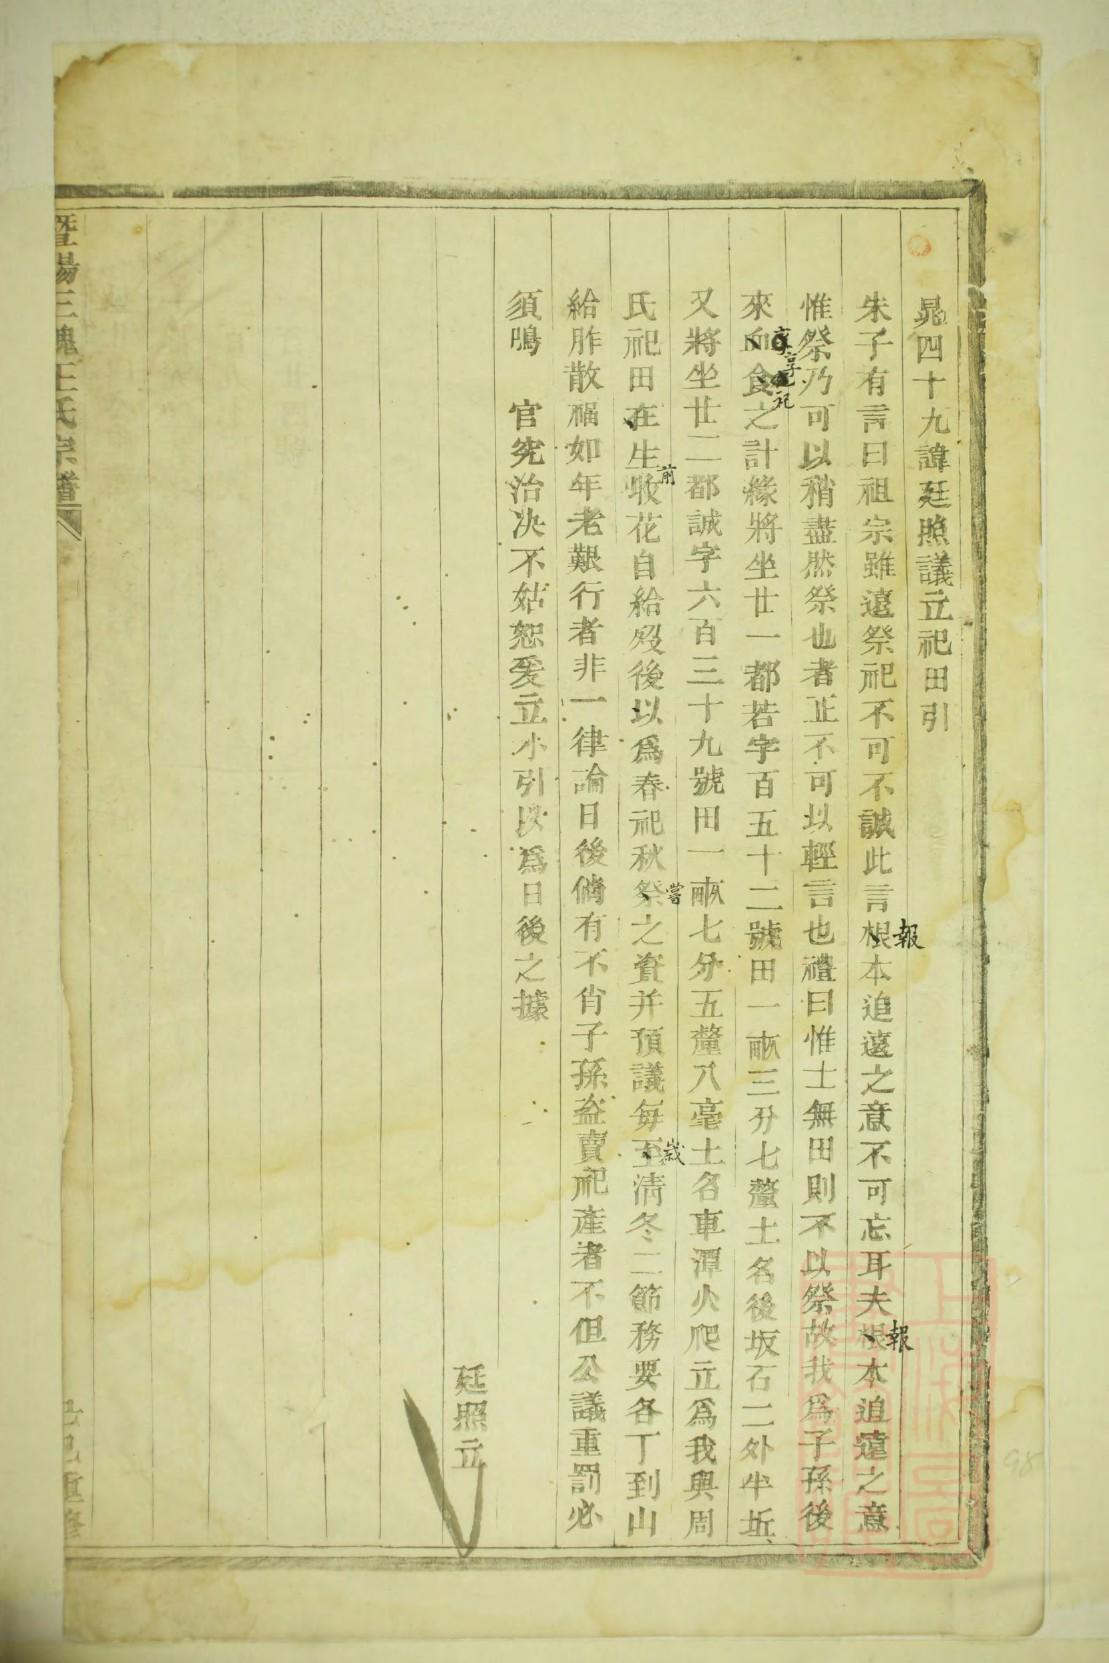 晁四十九諱廷照議立祀田引
朱子有言曰祖宗雖遠祭祀不可不誠此言根本追遠之意不可忘耳夫根本追遠之意
報
報
惟祭乃可以稍盡然祭也者正不可以輕言也禮曰惟士無田則不以祭故我爲子孫後
來血食之計緣將坐廿一都若字百五十二號田一畝三分七釐土名後坂石二外半坵
享祀
又將坐廿二都誠字六百三十九號田一畝七分五釐八毫土名車潭火爬立爲我與周
氏祀田在生收花自給歿後以爲春祀秋祭之資并預議每至清冬二節務要各丁到山
前
嘗
歲
給胙散福如年老艱行者非一律論日後倘有不肖子孫盜賣祀產者不但公議重罰必
須鳴 官究治決不姑恕爰立小引以爲日後之據
廷照立
暨陽三槐王氏宗譜
己巳重修
98